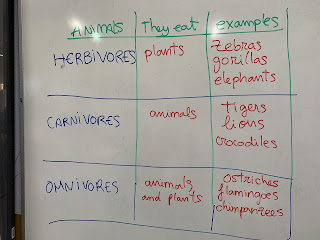 ANIMALS They eat examples
HERBIVORES plants zebras
gorillas
elephants
CARNIVORES animals Tigers
lions
crocodiles
OMNIVORES animals and plants ostriches
flamingoes
chimpanzees